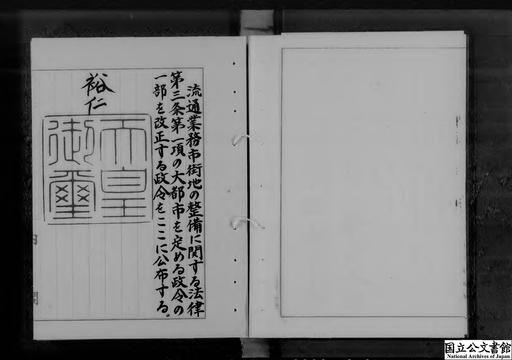 流通業務市街地の整備に関する法律
第三条第一項の大都市を定める政令の
一部を改正する政令をここに公布する。
裕仁
天皇
御璽
国立公文書館
National Archives of Japan